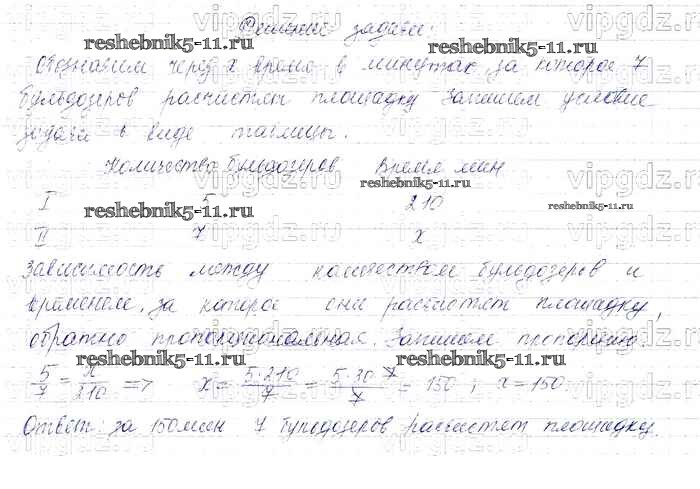 Решение задачи:
Обозначим через x время в минутах за которое 7
бульдозеров расчистят площадку Запишем условие
задачи в виде таблицы.
Количество бульдозеров Время мин
I 5 210
II 7 x
Зависимость между количеством бульдозеров и
временем, за которое они расчистят площадку,
обратно пропорциональная. Запишем пропорцию
5/7 = x/210 => x = 5·210/7 = 5·30·7/7 = 150 ; x=150.
Ответ: за 150 мин 7 бульдозеров расчистят площадку.
reshebnik5-11.ru
reshebnik5-11.ru
reshebnik5-11.ru
reshebnik5-11.ru
reshebnik5-11.ru
reshebnik5-11.ru
reshebnik5-11.ru
vipgdz.ru